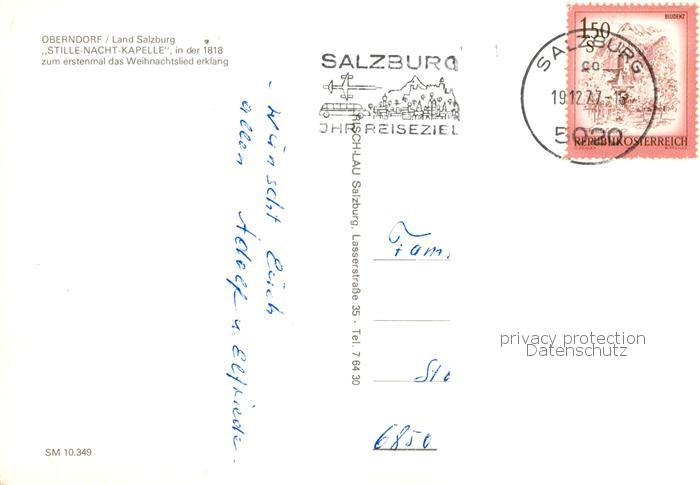 OBERNDORF / Land Salzburg
„STILLE-NACHT-KAPELLE", in der 1818
zum erstenmal das Weihnachtslied erklang
- Wünscht Euch
allen Adolf u. Elfriede.
SM 10.349
RISCH-LAU Salzburg, Lasserstraße 35 - Tel. 7 64 30
SALZBURG
IHR REISEZIEL
SALZBURG
19.12.77-18
5020
BLUDENZ
1.50
S
REPUBLIK ÖSTERREICH
Fam.
6850
privacy protection
Datenschutz